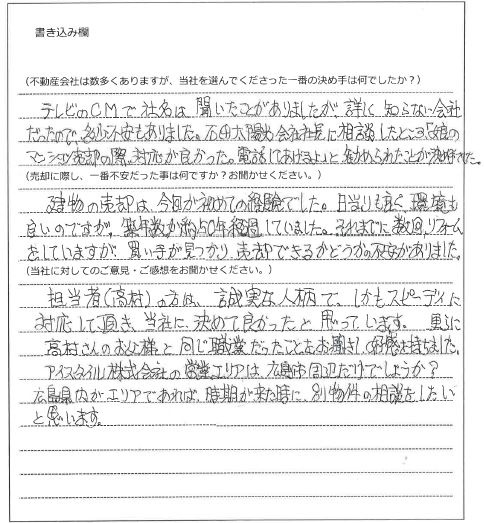 書き込み欄
(不動産会社は数多くありますが、当社を選んでくださった一番の決め手は何でしたか?)
テレビのCMで社名は聞いたことがありましたが、詳しく知らない会社
だったので、多少不安もありました。太陽 会会社社長に相談したところ「娘の
マンション売却の際、対応が良かった。電話してあげるよ」と勧められたことが決め手でした。
(売却に際し、一番不安だった事は何ですか?お聞かせください。)
建物の売却は、今回が初めての経験でした。日当りも良く環境も
良いのですが、築年数が約50年経過していました。それまでに数回リフォーム
をしていますが、買い手が見つかり、売却できるかどうかの不安がありました。
(当社に対してのご意見・ご感想をお聞かせください。)
担当者(高村)の方は、誠実な人柄で、しかもスピーディに
対応して頂き、当社に決めて良かったと思っています。更に
高村さんのお父様と同じ職業だったこともお聞きし、好感を持ちました。
アイスタイル株式会社の営業エリアは広島市周辺だけでしょうか?
広島県内がエリアであれば、時期が来た時に、別物件の相談をしたい
と思います。